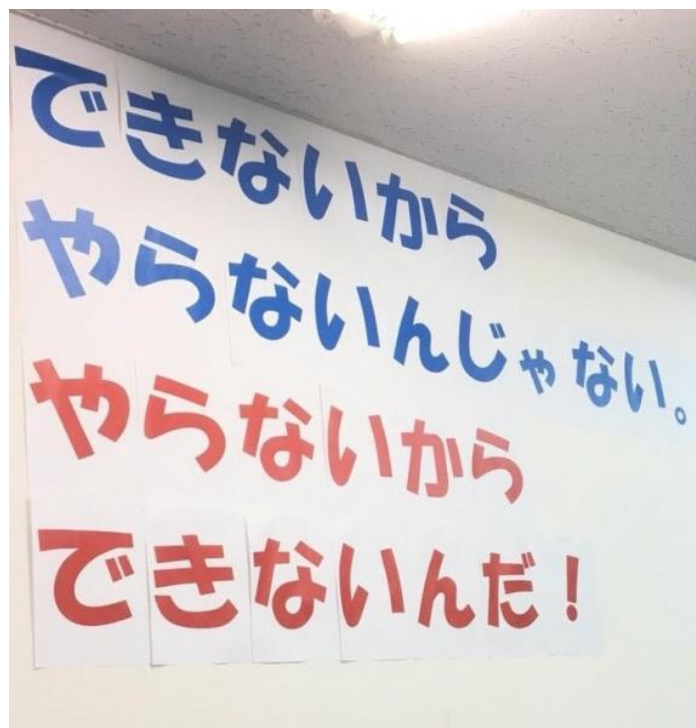 できないから
やらないんじゃない。
やらないから
できないんだ！